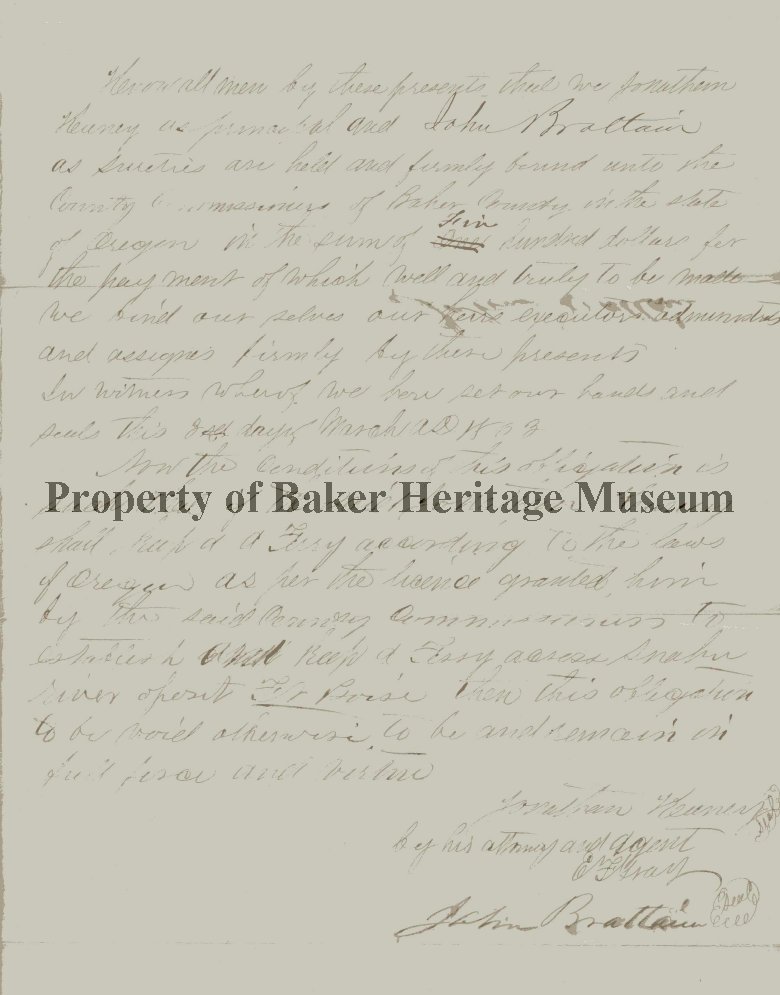 Know all men by these presents that we Jonathan
Keeney as principal and John Brattain
as sureties are held and firmly bound unto the
County Commissioners of Baker County in the state
of Oregon in the sum of Five hundred dollars for
the payment of which well and truly to be made
we bind our selves our heirs executors administrators
and assignes firmly by these presents
In witness whereof we here set our hands and
seals this day of March AD
Now the Conditions of this obligation is
Property of Baker Heritage Museum
shall keep a Ferry according to the laws
of Oregon as per the licence granted him
by the said County Commissioners to
establish and keep a Ferry across Snake
River oposit Ft Boise then this obligation
to be void otherwise to be and remain in
full force and virtue
Jonathan Keeney
Seal
by his attorney and agent
John Brattain
Seal